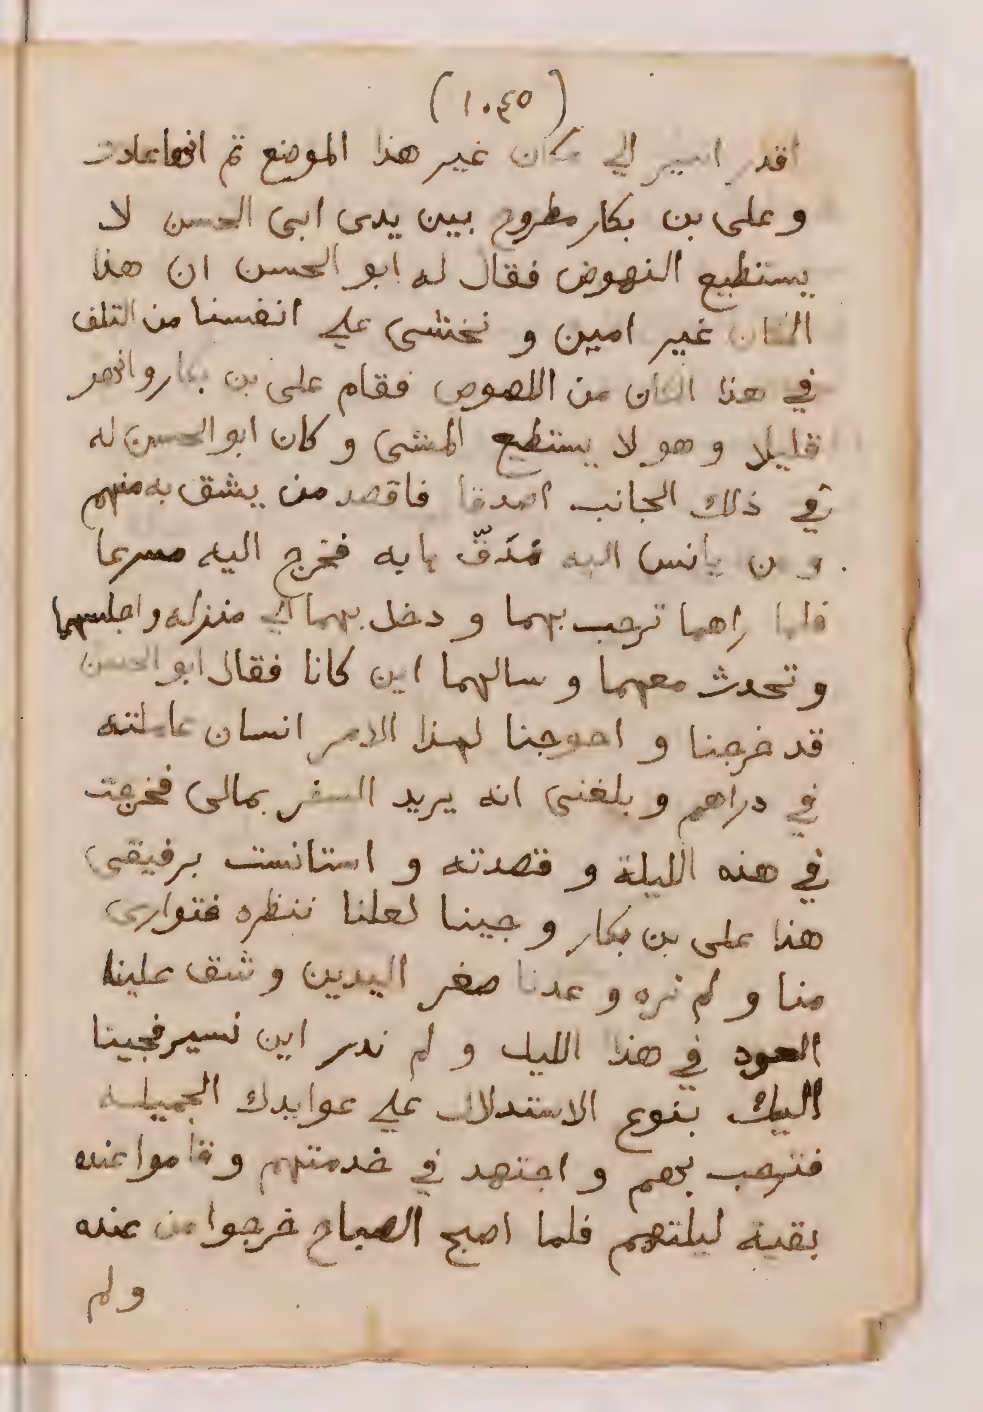 (١٠٤٥)
اقدر اسير الي مكان غير هذا الموضع ثم انها عادت
و على بن بكار مطروح بين يدى ابى الحسن لا
يستطيع النهوض فقال له ابو الحسن ان هذا
المكان غير امين و نخشى علي انفسنا من التلف
في هذا المكان من اللصوص فقام على بن بكار و انجر
قليلا و هو لا يستطيع المشى و كان ابو الحسن له
في ذلك الجانب اصدقا فاقصد من يشق به منهم
و من يانس اليه فدَقّ بابه فخرج اليه مسرعا
فلما راهما ترحب بهما و دخل بهما الي منزله و اجلسهما
و تحدث معهما و سالهما اين كانا فقال ابو الحسن
قد خرجنا و احوجنا لهذا الامر انسان عاملته
في دراهم و بلغنى انه يريد السفر بمالى فخرجت
في هذه الليلة و قصدته و استانست برفيقى
هذا على بن بكار و جينا لعلنا ننظره فتوارى
منا و لم نره و عدنا صغر اليدين و شق علينا
العود في هذا الليل و لم ندر اين نسير فجينا
اليك بنوع الاستدلال علي عوايدك الجميله
فترحب بهم و اجتهد في خدمتهم و قاموا عنده
بقية ليلتهم فلما اصبح الصباح خرجوا من عنده
و لم